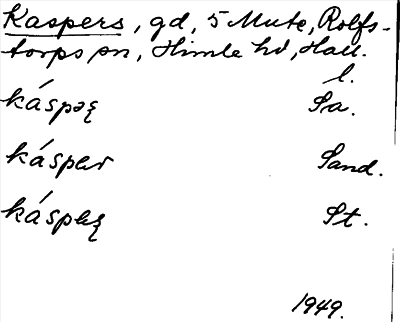 Kaspers, gd, 5 Mute, Rolfs-
torps sn, Himle hd, Hall.
l.
káspəʂ Sa.
káspər Sand.
káspəʂ St.
1949.